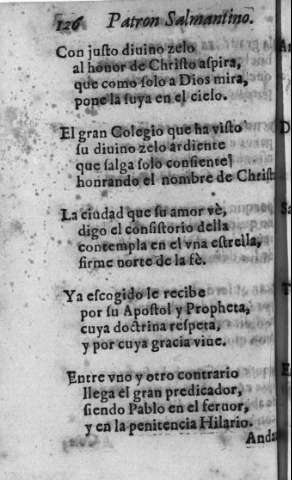 126 Patron Salmantino.
Con justo diuino zelo
al honor de Christo aspira,
que como solo a Dios mira,
pone la suya en el cielo.
El gran Colegio que ha visto
su diuino zelo ardiente
que salga solo consiente
honrando el nombre de Christ
La ciudad que su amor vè,
digo el consistorio della
contempla en el vna estrella,
firme norte de la fè.
Ya escogido le recibe
por su Apostol y Propheta,
cuya doctrina respeta,
y por cuya gracia viue.
Entre vno y otro contrario
llega el gran predicador,
siendo Pablo en el feruor,
y en la penitencia Hilario.
Anda